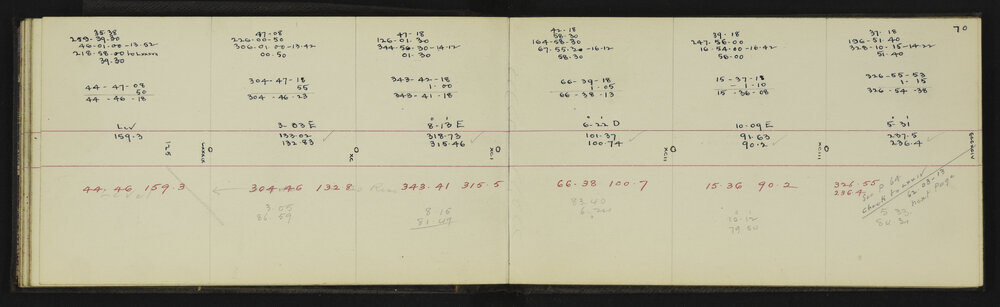 70
35-38
259-39-30
46-01-00-13-52
218-58-00
39-30
44-47-08
50
44-46-18
Lev
159.3
44.46 159.3
47-08
226-00-50
306-01-00-13-42
00-50
304-47-18
55
304-46-23
3-03 E
133.02
132.83
304.46 132.8
3-05
86.59
47-18
126-01-30
344-56-30-14-12
01-30
343-42-18
1-00
343-41-18
8-13 E
318.73
315.46
XC
343.41 315.5
8-15
81.49
42-18
58-30
164-58-30
67-55-30-16-12
58-30
66-39-18
1-05
66-38-13
6-22 D
101.37
100.74
XCI
66-38 100.7
83.40
6.20
39-18
247-56-00
16-54-00-16-42
56-00
15-37-18
1-10
15-36-08
10-09 E
91.63
90.2
15.36 90.2
10-12
79 50
37-18
196-51-40
328-10-15-14-22
51-40
326-55-53
1-15
326-54-38
5-31
237.5
236.4
XCIII
326.55
236.4
See p 64
check to
62-03-13
next Page
5 33